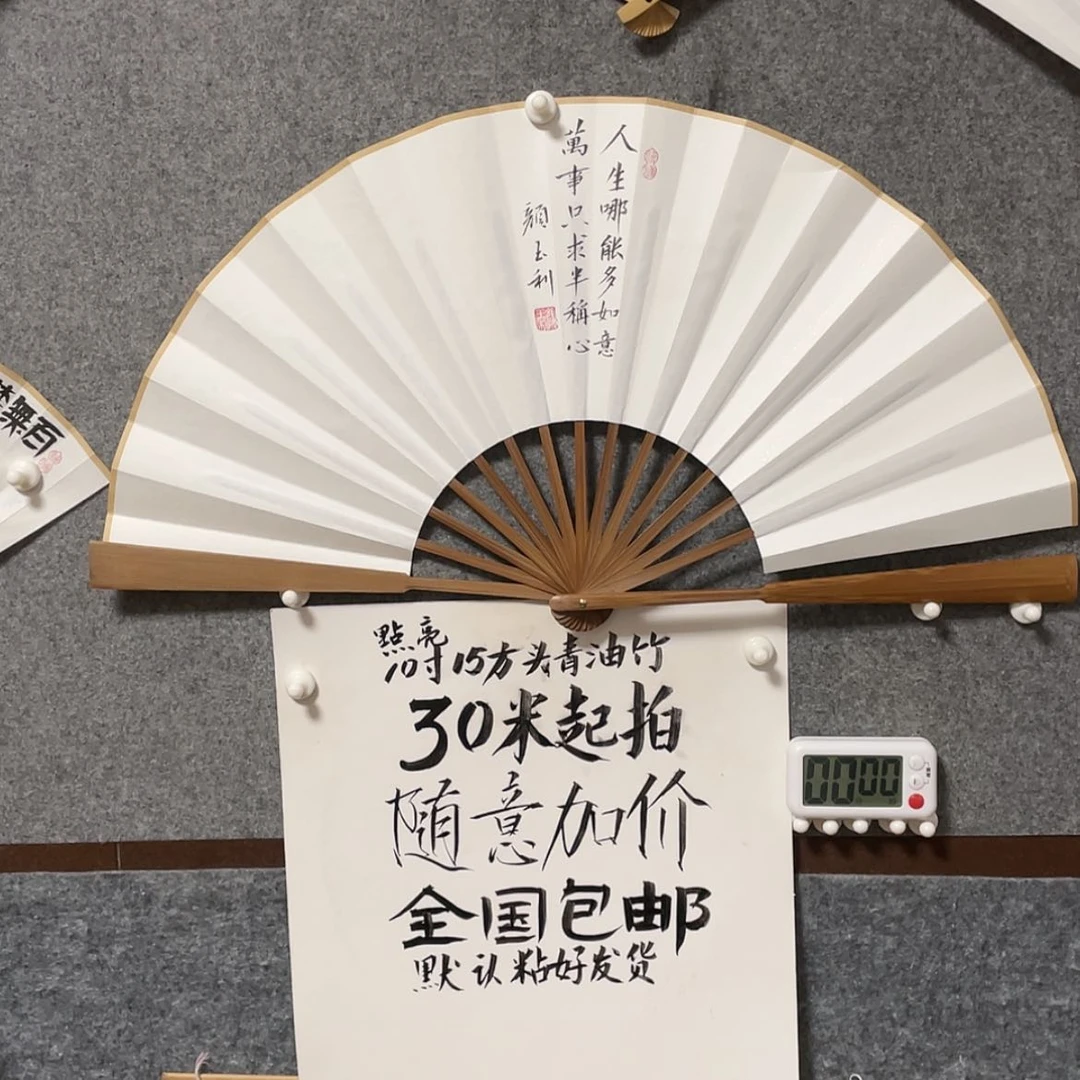 人生哪能多如意
萬事只求半稱心
顏玉利
百無禁
點亮
10寸15方头青油竹
30米起拍
随意加价
全国包邮
默认粘好发货
00:00